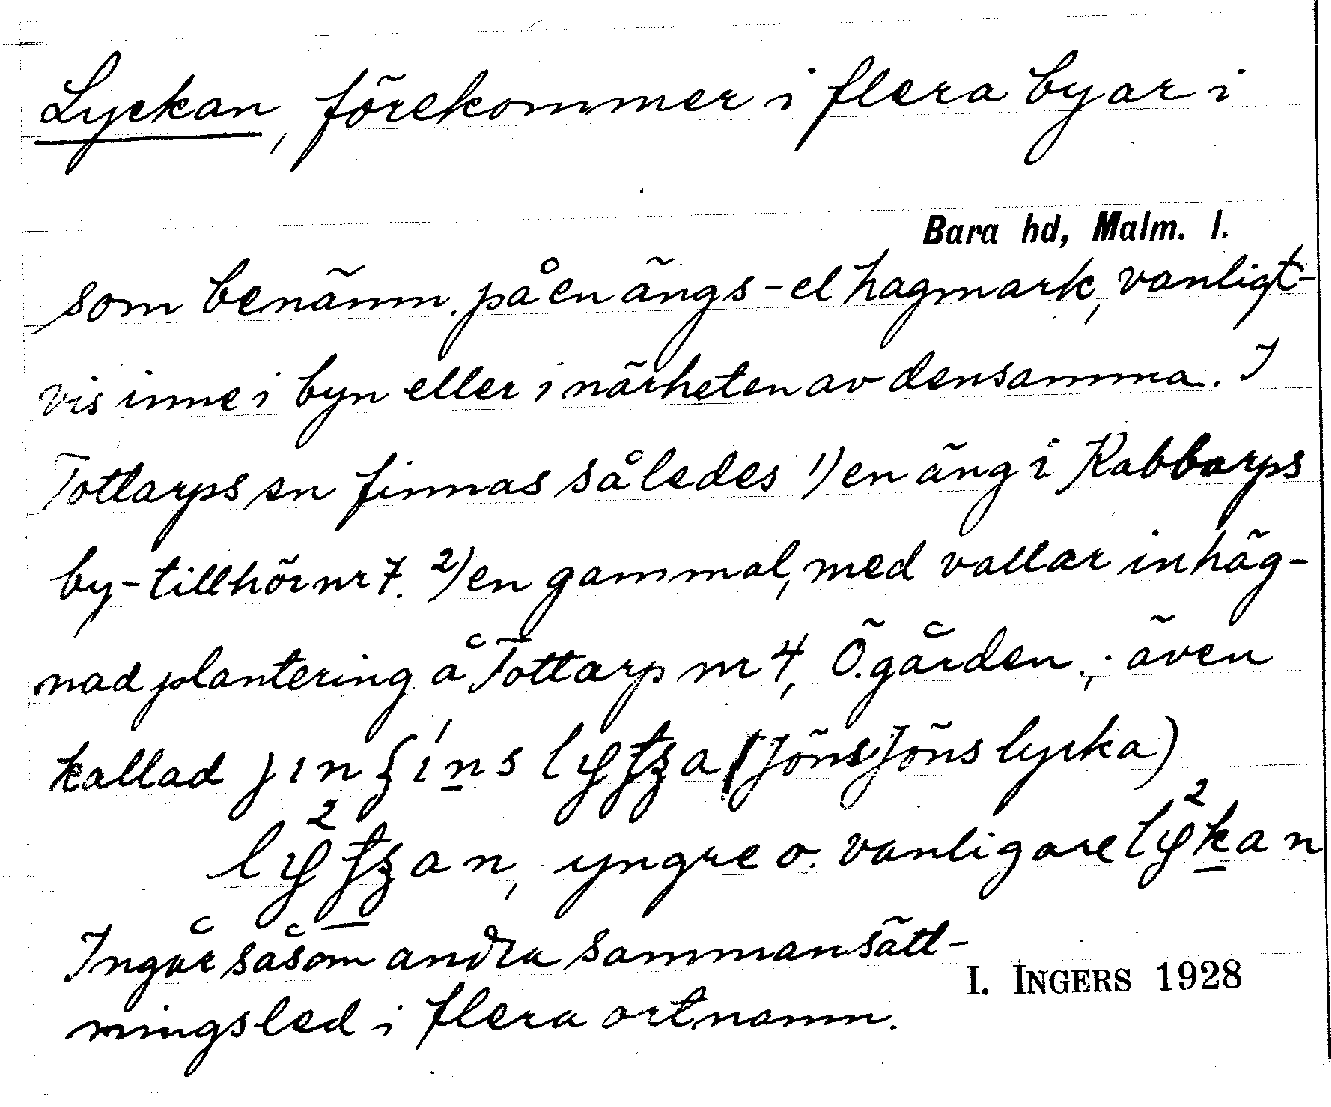 Lyckan, förekommer i flera byar i
Bara hd, Malm. l.
som benämn. på en ängs- el hagmark, vanligt-
vis inne i byn eller i närheten av densamma. I
Tottarps sn finnas således 1) en äng i Kabbarps
by - tillhör nr 7. 2) en gammal, med vallar inhäg-
nad plantering å Tottarp nr 4, Ö.gården.; även
kallad (Jöns Jöns lycka)
yngre o. vanligare
Ingår såsom andra sammansätt-
ningsled i flera ortnamn.
I. INGERS 1928